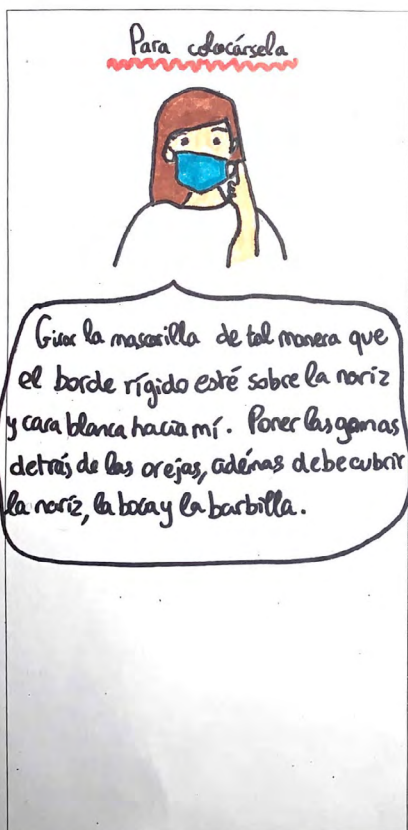 Para colocársela
Girar la mascarilla de tal manera que
el borde rígido esté sobre la nariz
y cara blanca hacia mí. Poner las gomas
detrás de las orejas, adémas debe cubrir
la naríz, la boca y la barbilla.